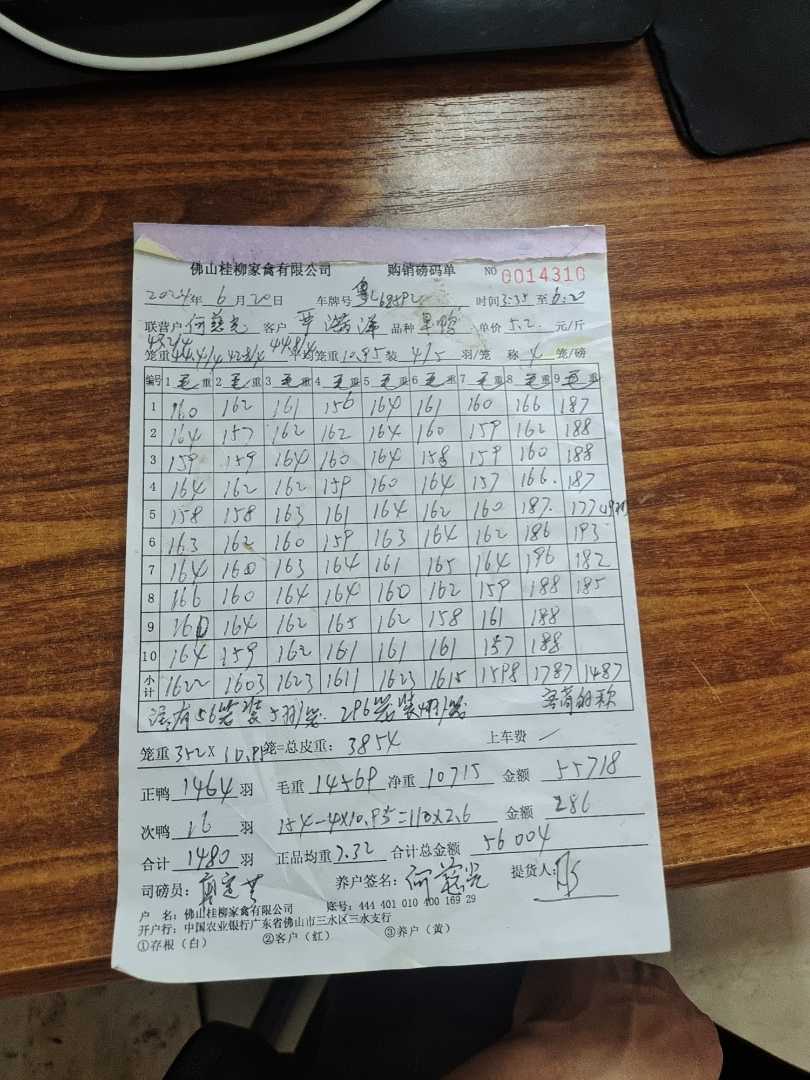 佛山桂柳家禽有限公司 购销磅码单 NO 0014310
2024年 6月20日 车牌号 粤L 时间3:35至6:20
联营户 何慈光 客户 满洋 品种 旱鸭 单价5.2元/斤
43.2/4
笼重44.4/4 42.8/4 44.8/4 平均笼重10.95装 4/5 羽/笼 称 4 笼/磅
编号 1毛重 2毛重 3毛重 4毛重 5毛重 6毛重 7毛重 8毛重 9毛重
1 160 162 161 156 164 161 160 166 187
2 164 157 162 162 164 160 159 162 188
3 159 159 164 160 164 158 159 160 188
4 164 162 162 159 160 164 157 166. 187
5 158 158 163 161 164 162 160 187. 177
6 163 162 160 159 163 164 162 186 193
7 164 160 163 164 161 165 164 196 182
8 166 160 164 164 160 162 159 188 185
9 160 164 162 165 162 158 161 188
10 164 159 162 161 161 161 157 188
小计 1622 1603 1623 1611 1623 1615 1598 1787 1487
注:有56笼装5羽/笼. 296笼装4羽/笼
笼重 352×10.95笼=总皮重: 3854 上车费 /
正鸭 1464 羽 毛重 14569 净重 10715 金额 55718
次鸭 16 羽 154-4×10.95=110×2.6 金额 286
合计 1480 羽 正品均重 7.32 合计总金额 56004
司磅员: 养户签名: 何慈光 提货人:
户 名: 佛山桂柳家禽有限公司 账号: 444 401 010 400 169 29
开户行: 中国农业银行广东省佛山市三水区三水支行
①存根（白） ②客户（红） ③养户（黄）